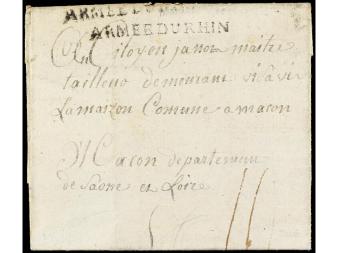 ARMEE DU RHIN
ARMEE DU RHIN
Au Citoyen janot maitre
tailleur demeurant vis à vis
La maison Comune a macon
Macon departement
de Saone et Loire
11